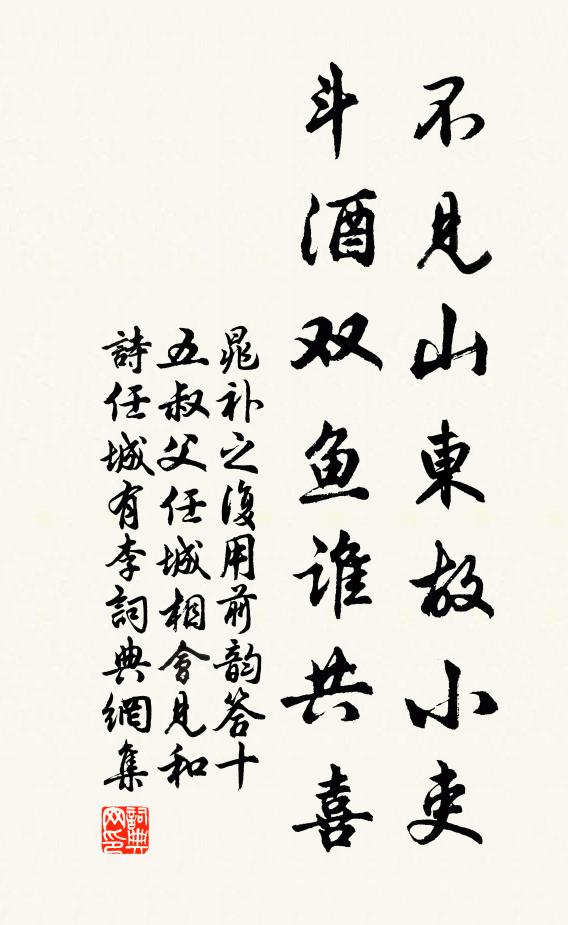 不見山東故小吏
斗酒双鱼谁共喜
晁补之復用前韵答十
五叔父任城相會見和
詩任城有李詞典網集
詞典网印